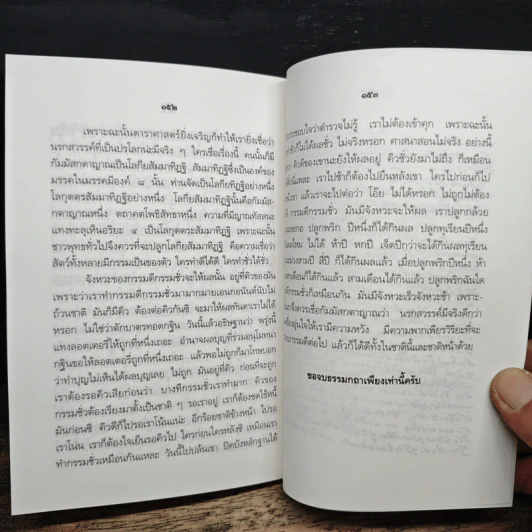 ๑๕๒
เพราะฉะนั้นดาราศาสตร์ยิ่งเจริญก็ทำให้เรายิ่งเชื่อว่า
นรกสวรรค์ที่เป็นปรโลกน่ะมีจริง ๆ ใครเชื่อเรื่องนี้ คนนั้นก็มี
กัมมัสกตาญาณเป็นโลกียสัมมาทิฏฐิ สัมมาทิฏฐิซึ่งเป็นองค์ของ
มรรคในมรรคมีองค์ ๘ นั้น ท่านจัดเป็นโลกียทิฏฐิอย่างหนึ่ง
โลกุตตรสัมมาทิฏฐิอย่างหนึ่ง โลกียสัมมาทิฏฐินั้นคือกัมมัส-
กตาญาณหนึ่ง ตถาคตโพธิสัทธาหนึ่ง ความที่มีญาณทัสสนะ
แทงทะลุเห็นอริยะ ๔ เป็นโลกุตตระสัมมาทิฏฐิ เพราะฉะนั้น
ชาวพุทธทั่วไปจึงควรที่จะปลูกโลกียสัมมาทิฏฐิ คือความเชื่อว่า
สัตว์ทั้งหลายมีกรรมเป็นของตัว ใครทำดีได้ดี ใครทำชั่วได้ชั่ว
จังหวะของกรรมดีกรรมชั่วจะให้ผลนั้น อยู่ที่คิวของมัน
เพราะว่าเราทำกรรมดีกรรมชั่วมามากมายเอนกอนันต์นับไม่
ถ้วนชาติ มันก็มีคิว ต้องต่อคิวกันซิ จะมาให้ผลทันตาเราไม่ได้
หรอก ไม่ใช่ว่าตักบาตรทอดกฐิน วันนี้แล้วอธิษฐานว่า พรุ่งนี้
แทงลอตเตอรี่ให้ถูกที่หนึ่งเถอะ อำนาจผลบุญที่ร่วมอนุโมทนา
กฐินขอให้ลอตเตอรี่ถูกที่หนึ่งเถอะ แล้วพอไม่ถูกก็มาโกรธบอก
ว่าทำบุญไม่เห็นได้ผลบุญเลย ไม่ถูก มันอยู่ที่คิว ก่อนที่จะถูก
เราต้องรอคิวเสียก่อนว่า บางทีกรรมชั่วเราทำมาก คิวของ
กรรมชั่วต้องเรียงมาตั้งเป็นชาติ ๆ รอเราอยู่ เราก็ต้องชดใช้หนี้
มันก่อนซิ คิวดีก็ไปรอเราโน้นแน่ะ อีกร้อยชาติข้างหน้า ไปรอ
เราโน่น เราก็ต้องใจเย็นรอคิวไป ใครก่อนใครหลังซิ เหมือนเรา
ทำกรรมชั่วเหมือนกันแหละ วันนี้ไปปล้นเขา ปิดบังหลักฐานได้
๑๕๓
ชอบใจว่าตำรวจไม่รู้ เราไม่ต้องเข้าคุก เพราะฉะนั้น
ก็ไม่ได้ผลชั่ว ไม่จริงหรอก ศาสนาสอนไม่จริง อย่างนี้
คิวดีของเขานะยังให้ผลอยู่ คิวชั่วยังมาไม่ถึง ก็เหมือน
เราไปช้าก็ต้องไปยืนหลังเขา ใครไปก่อนก็ไป
แล้วเราจะไปต่อว่า โอ๊ย ไม่ได้หรอก ไม่ถูกไม่ต้อง
กรรมดีกรรมชั่ว มันมีจังหวะจะให้ผล เราปลูกกล้วย
ปลูกพริก ปีหนึ่งก็ได้กินผล ปลูกทุเรียนปีหนึ่ง
ไหม ไม่ ได้ ห้าปี หกปี เจ็ดปีกว่าจะได้กินผลทุเรียน
มะม่วงสามปี สี่ปี ก็ได้กินผลแล้ว เมื่อปลูกพริกปีหนึ่ง ห้า
เดือนก็ได้กินแล้ว สามเดือนได้กินแล้ว ปลูกพริกฉันใด
กรรมชั่วก็เหมือนกัน มันมีจังหวะเร็วจังหวะช้า เพราะ-
จึงควรเชื่อกัมมัสกตาญาณว่า นรกสวรรค์มีจริงดีกว่า
สุนใจให้เรามีความหวัง มีความพากเพียรวิริยะที่จะ
กรรมดีต่อไป แล้วก็ได้ดีทั้งในชาตินี้และชาติหน้าด้วย
ขอจบธรรมกถาเพียงเท่านี้ครับ